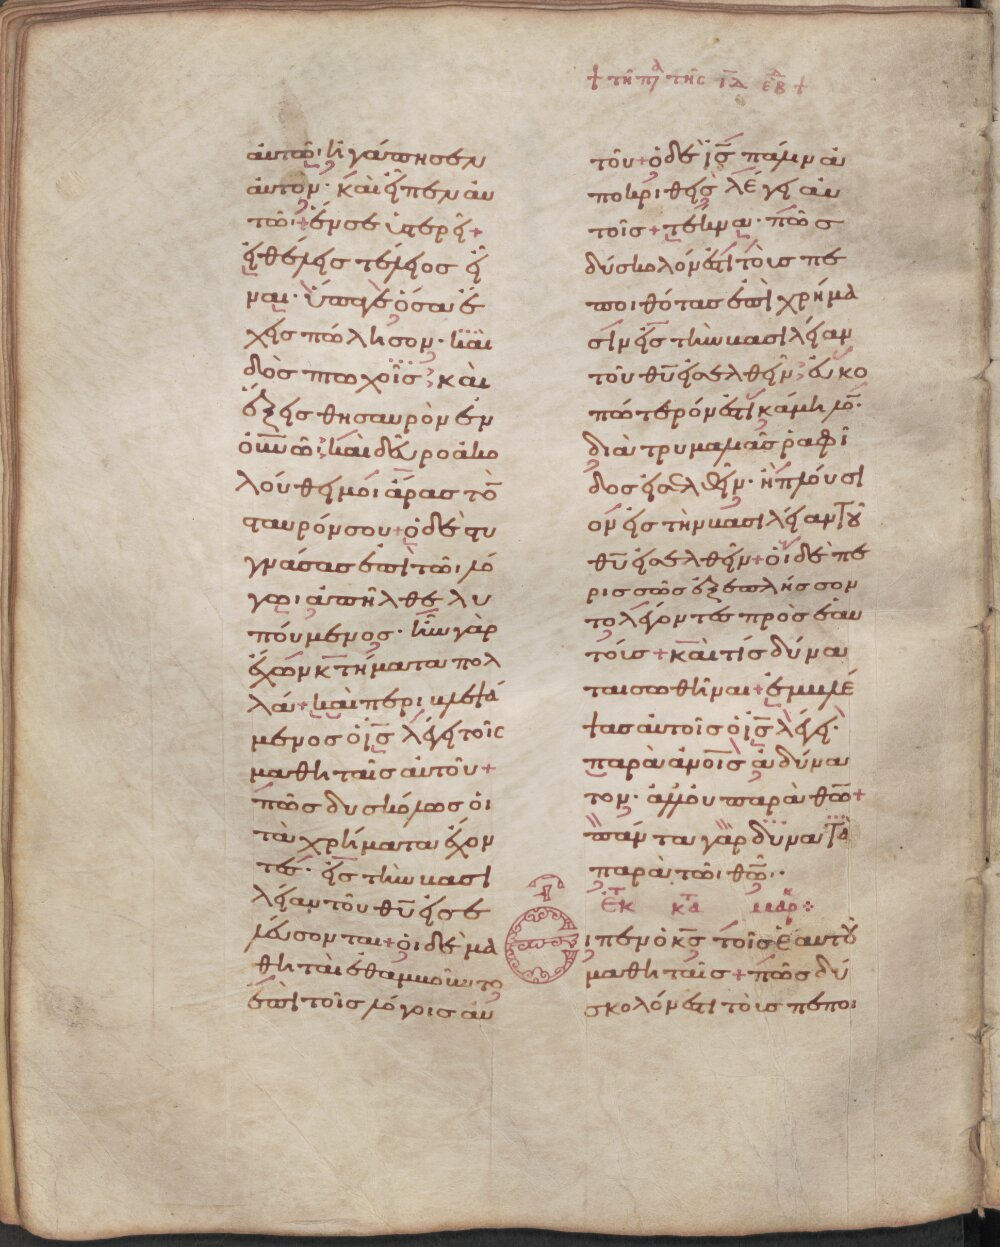 + τῆ πα τῆς ιδ εβ +
αὐτῶ· ἠγάπησεν
αὐτόν· καὶ εἶπεν αὐ
τῶ· + ἕν σε ὑστερεῖ +
εἰ θέλεις τέλειος εἶ
ναι· ὕπαγε ὅσα ἔ
χεις πώλησον· καὶ
δὸς πτωχοῖς· καὶ
ἕξεις θησαυρὸν ἐν
οὐνῶ· καὶ δεῦρο ἀκο
λούθει μοι ἄρας τὸ
σταυρόν σου + ὁ δὲ στυ
γνάσας ἐπὶ τῶ λό
γωι ἀπῆλθε λυ
πούμενος· ἦν γὰρ
ἔχων κτήματα πολ
λά + καὶ περιβλεψά
μενος ὁ ις λέγει τοῖς
μαθηταῖς αὐτοῦ +
πῶς δυσκόλως οἱ
τὰ χρήματα ἔχον
τες· εἰς τὴν βασι
λείαν τοῦ θυ εἰσε
λεύσονται + οἱ δὲ μα
θηταὶ ἐθαμβοῦντο
ἐπὶ τοῖς λόγοις αὐ
τοῦ + ὁ δὲ ις πάλιν ἀ
ποκριθεὶς λέγει αὐ
τοῖς + τέκνα· πῶς
δύσκολόν ἐστι τοὺς πε
ποιθότας ἐπὶ χρήμα
σιν εἰς τὴν βασιλείαν
τοῦ θυ εἰσελθεῖν· εὐκο
πώτερόν ἐστι κάμηλον·
διὰ τρυμαλιᾶς ῥαφί
δος εἰσελθεῖν· ἢ πλούσι
ον εἰς τὴν βασιλείαν τοῦ
θυ εἰσελθεῖν + οἱ δὲ πε
ρισσῶς ἐξεπλήσσον
το λέγοντες πρὸς ἑαυ
τούς + καὶ τίς δύνα
ται σωθῆναι + ἐμβλέ
ψας αὐτοῖς ὁ ις λέγει·
παρὰ ἀνοις ἀδύνα
τον· ἀλλ' οὐ παρὰ θω +
πάντα γὰρ δυνατὰ
παρὰ τῶ θω··
ἐκ κτ μαρ:
Εἶπεν ὁ κς τοῖς ἑαυτοῦ
μαθηταῖς + πῶς δύ
σκολόν ἐστι τοὺς πεποι